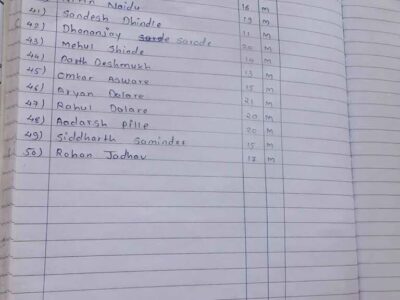 Naidu 16 M
41) Sandesh Dhindle 19 M
42) Dhananjay sarode 11 M
43) Mehul Shinde 20 M
44) Parth Deshmukh 19 M
45) Omkar Asware 13 M
46) Aryan Dolare 15 M
47) Rahul Dolare 21 M
48) Aadarsh Pille 20 M
49) Siddharth Saminder 15 M
50) Rohan Jadhav 17 M